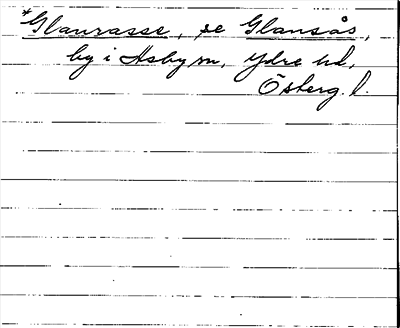 *Glansasse, se Glansås,
by i Asby sn, Ydre hd,
Österg. l.